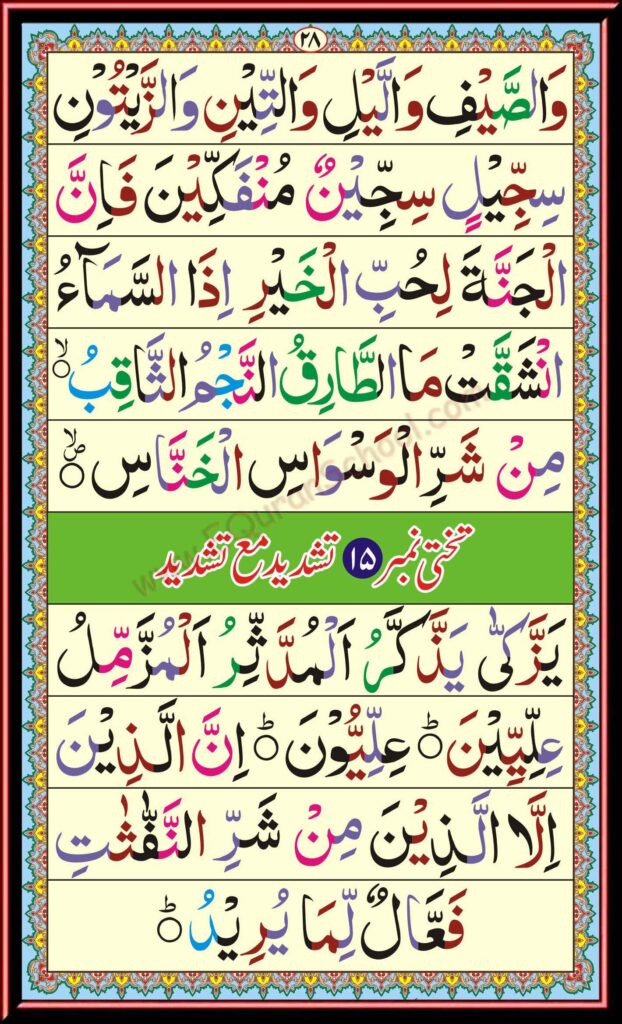 ۲۸
وَالصَّيْفِ وَالَّيْلِ وَالتِّيْنِ وَالزَّيْتُوْنِ
سِجِّيْلٍ سِجِّيْنٌ مُنْفَكِّيْنَ فَاِنَّ
الْجَنَّةَ لِحُبِّ الْخَيْرِ اِذَا السَّمَآءُ
انْشَقَّتْ مَا الطَّارِقُ النَّجْمُ الثَّاقِبُ ۙ
مِنْ شَرِّ الْوَسْوَاسِ الْخَنَّاسِ ۙ
تختی نمبر ۱۵ تشدید مع تشدید
يَزَّكّٰى يَذَّكَّرُ اَلْمُدَّثِّرُ اَلْمُزَّمِّلُ
عِلِّيِّيْنَ ؕ عِلِّيُّوْنَ ؕ اِنَّ الَّذِيْنَ
اِلَّا الَّذِيْنَ مِنْ شَرِّ النَّفّٰثٰتِ
فَعَّالٌ لِّمَا يُرِيْدُ ؕ